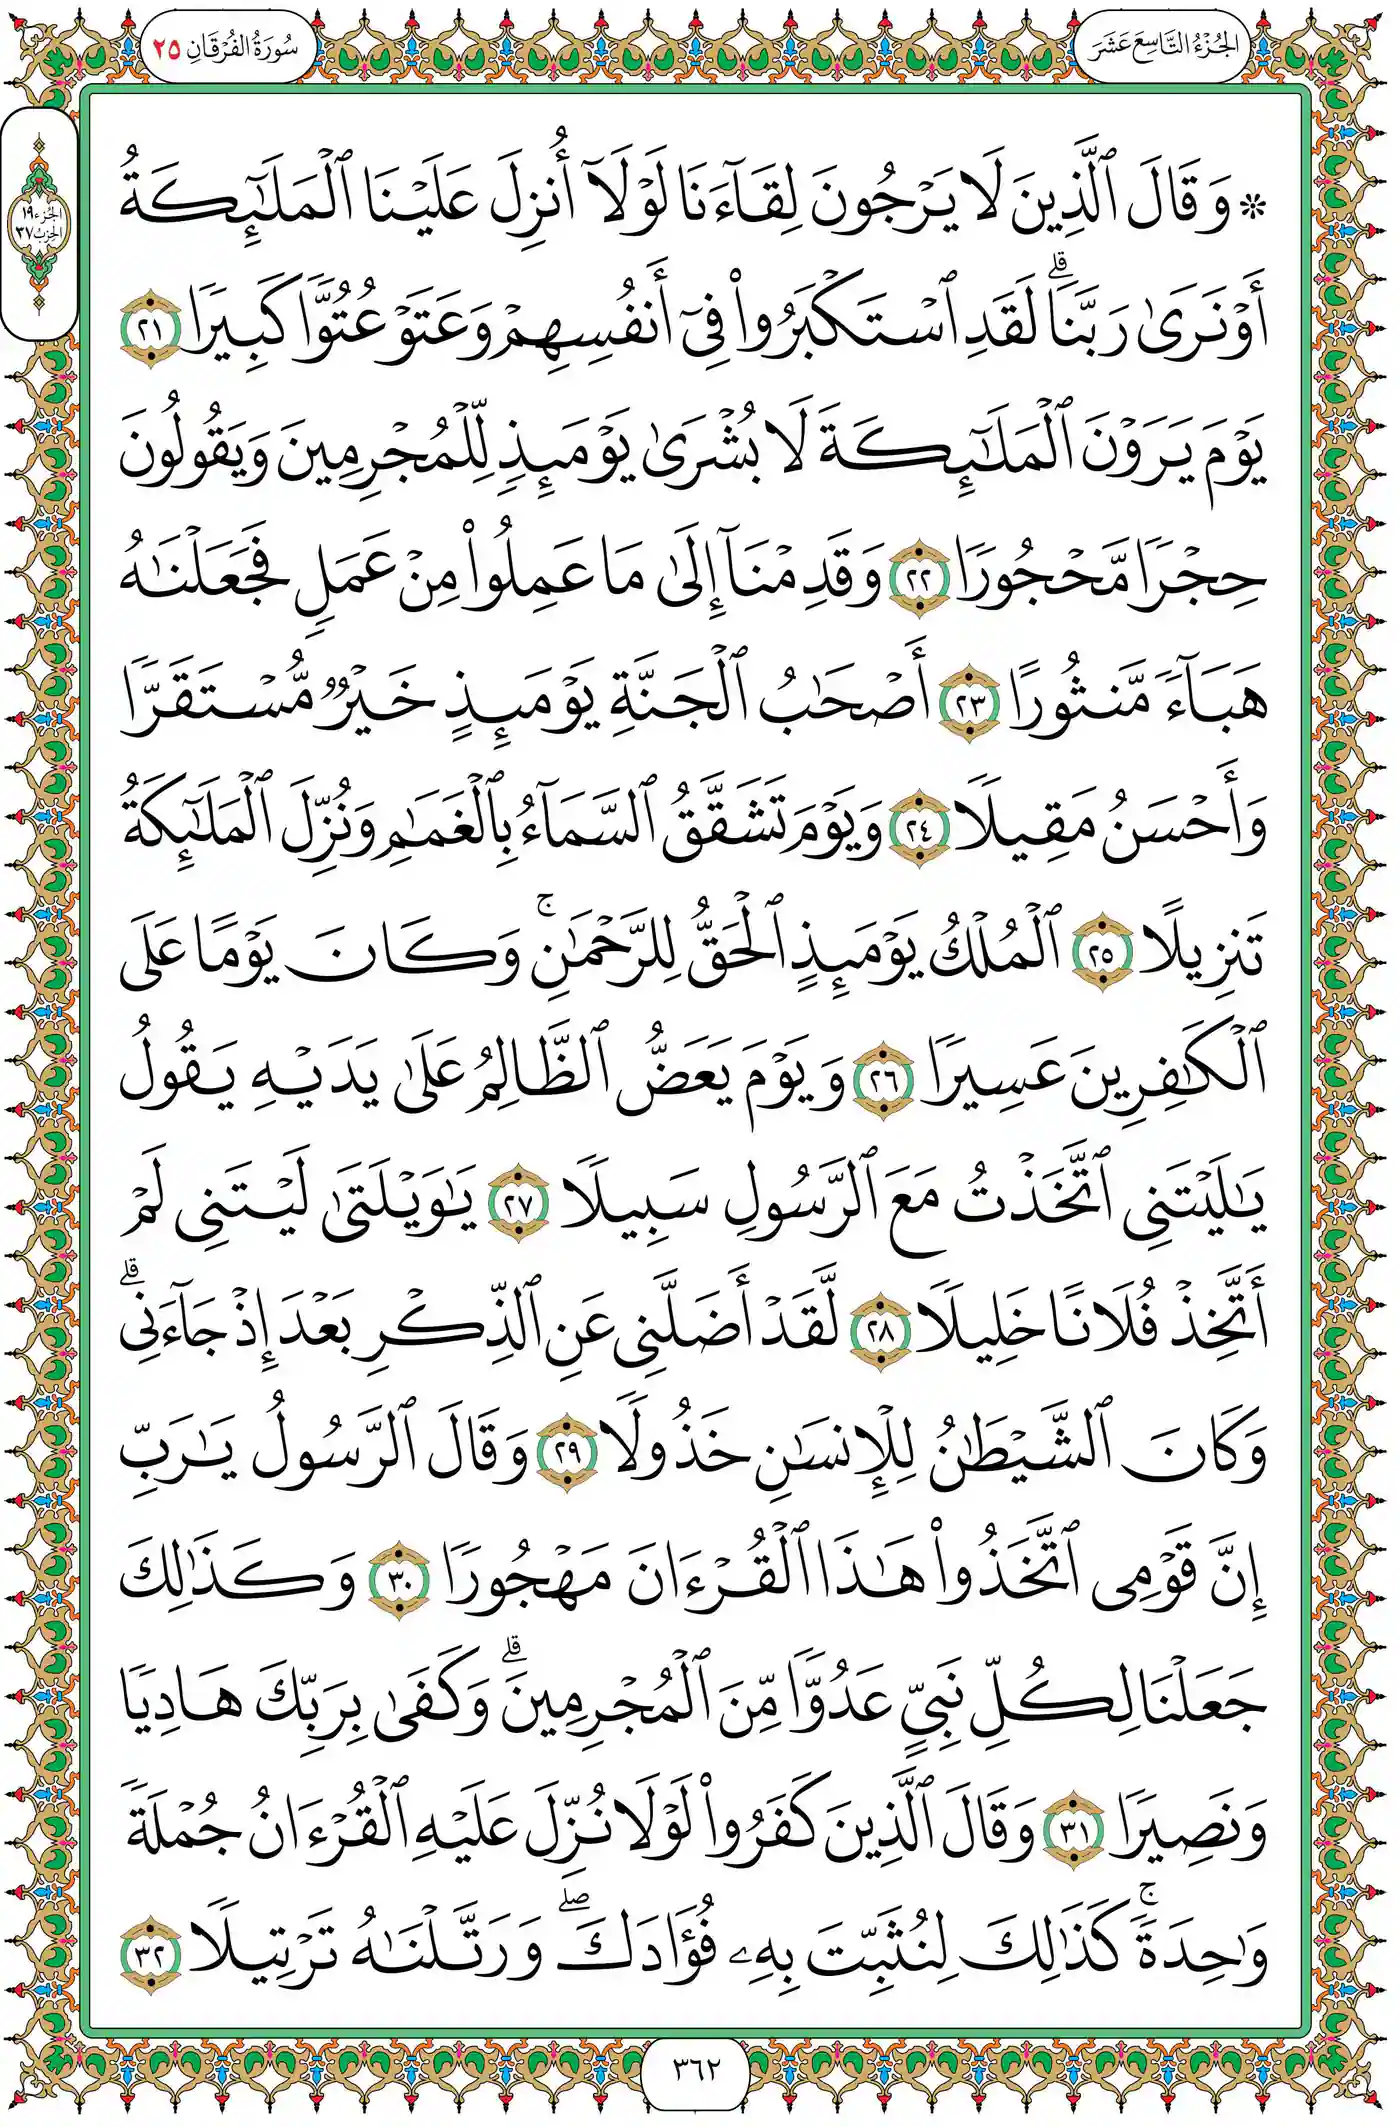 الجُزْءُ التَّاسِعَ عَشَرَ
سُورَةُ الفُرْقَانِ ٢٥
الجزء ١٩
الحزب ٣٧
۞ وَقَالَ ٱلَّذِينَ لَا يَرْجُونَ لِقَآءَنَا لَوْلَآ أُنزِلَ عَلَيْنَا ٱلْمَلَٰٓئِكَةُ
أَوْ نَرَىٰ رَبَّنَا ۗ لَقَدِ ٱسْتَكْبَرُوا۟ فِىٓ أَنفُسِهِمْ وَعَتَوْ عُتُوًّا كَبِيرًا ٢١
يَوْمَ يَرَوْنَ ٱلْمَلَٰٓئِكَةَ لَا بُشْرَىٰ يَوْمَئِذٍ لِّلْمُجْرِمِينَ وَيَقُولُونَ
حِجْرًا مَّحْجُورًا ٢٢ وَقَدِمْنَآ إِلَىٰ مَا عَمِلُوا۟ مِنْ عَمَلٍ فَجَعَلْنَٰهُ
هَبَآءً مَّنثُورًا ٢٣ أَصْحَٰبُ ٱلْجَنَّةِ يَوْمَئِذٍ خَيْرٌ مُّسْتَقَرًّا
وَأَحْسَنُ مَقِيلًا ٢٤ وَيَوْمَ تَشَقَّقُ ٱلسَّمَآءُ بِٱلْغَمَٰمِ وَنُزِّلَ ٱلْمَلَٰٓئِكَةُ
تَنزِيلًا ٢٥ ٱلْمُلْكُ يَوْمَئِذٍ ٱلْحَقُّ لِلرَّحْمَٰنِ ۚ وَكَانَ يَوْمًا عَلَى
ٱلْكَٰفِرِينَ عَسِيرًا ٢٦ وَيَوْمَ يَعَضُّ ٱلظَّالِمُ عَلَىٰ يَدَيْهِ يَقُولُ
يَٰلَيْتَنِى ٱتَّخَذْتُ مَعَ ٱلرَّسُولِ سَبِيلًا ٢٧ يَٰوَيْلَتَىٰ لَيْتَنِى لَمْ
أَتَّخِذْ فُلَانًا خَلِيلًا ٢٨ لَّقَدْ أَضَلَّنِى عَنِ ٱلذِّكْرِ بَعْدَ إِذْ جَآءَنِى ۗ
وَكَانَ ٱلشَّيْطَٰنُ لِلْإِنسَٰنِ خَذُولًا ٢٩ وَقَالَ ٱلرَّسُولُ يَٰرَبِّ
إِنَّ قَوْمِى ٱتَّخَذُوا۟ هَٰذَا ٱلْقُرْءَانَ مَهْجُورًا ٣٠ وَكَذَٰلِكَ
جَعَلْنَا لِكُلِّ نَبِىٍّ عَدُوًّا مِّنَ ٱلْمُجْرِمِينَ ۗ وَكَفَىٰ بِرَبِّكَ هَادِيًا
وَنَصِيرًا ٣١ وَقَالَ ٱلَّذِينَ كَفَرُوا۟ لَوْلَا نُزِّلَ عَلَيْهِ ٱلْقُرْءَانُ جُمْلَةً
وَٰحِدَةً ۚ كَذَٰلِكَ لِنُثَبِّتَ بِهِۦ فُؤَادَكَ ۖ وَرَتَّلْنَٰهُ تَرْتِيلًا ٣٢
٣٦٢